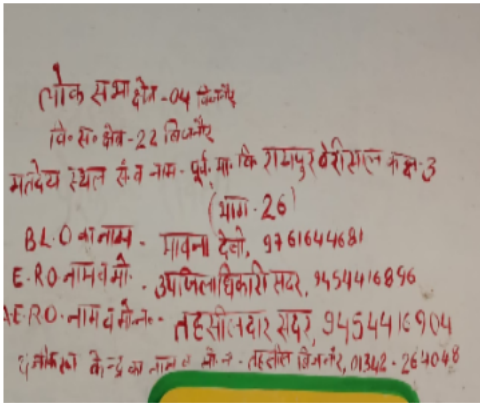 लोक सभा क्षेत्र -04 बिजनौर
वि० स० क्षेत्र -22 बिजनौर
मतदेय स्थल सं व नाम - पूर्व. मा. वि रामपुर बेरीसाल कक्ष-3
(भाग-26)
B.L.O का नाम - भावना देवी, 9761644681
E.R.O नाम व मो. - उपजिलाधिकारी सदर, 9454416896
A.E.R.O. नाम व मो०न० - तहसीलदार सदर, 9454416904
केन्द्र का नाम व मो.न - तहसील बिजनौर, 01342-264048